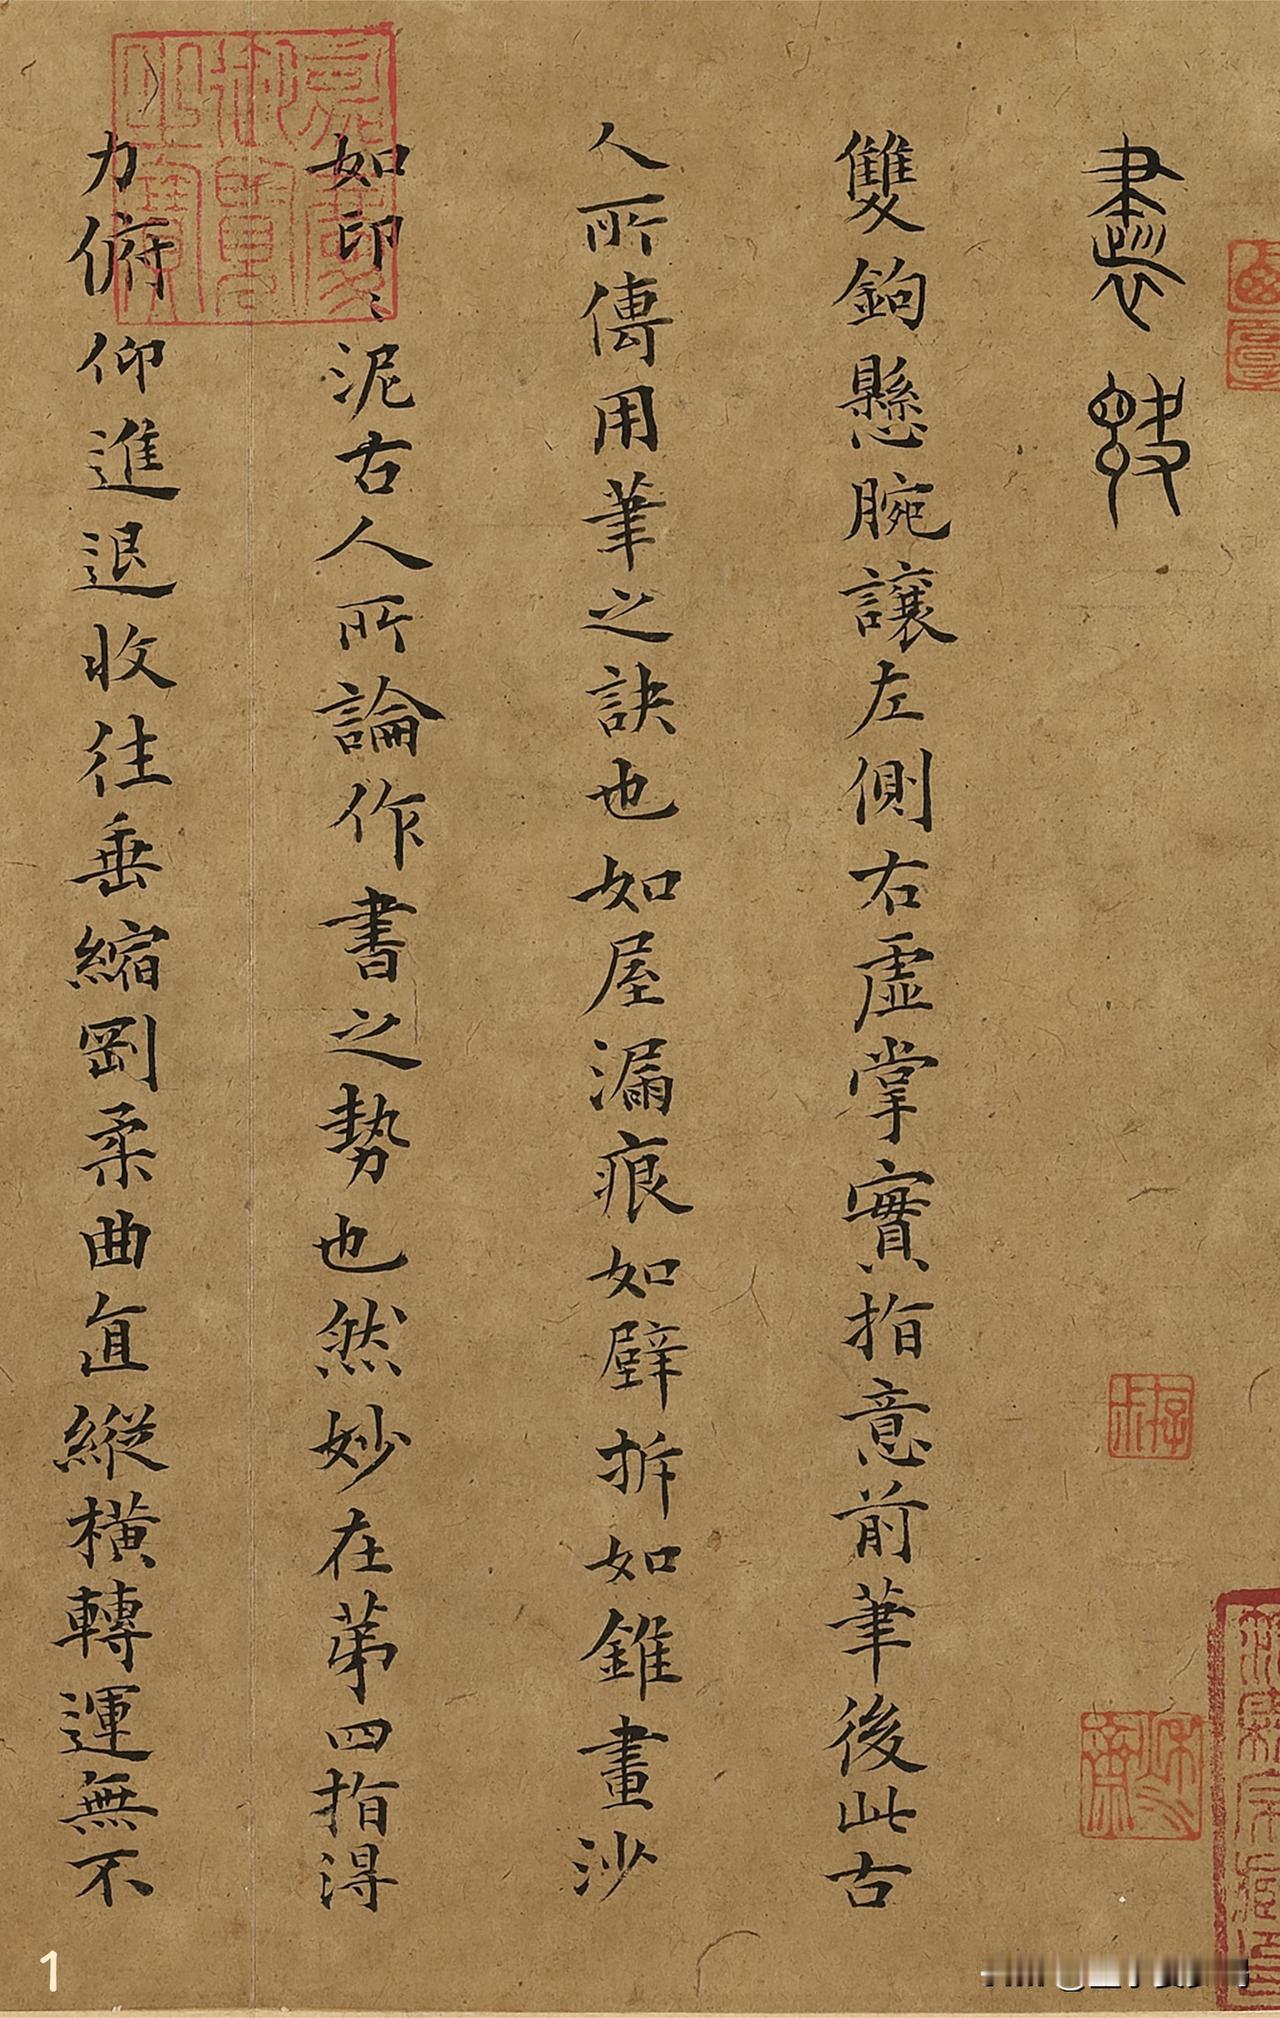 書訣
雙鉤懸腕讓左側右虛掌實指意前筆後此古
人所傳用筆之訣也如屋漏痕如壁拆如錐畫沙
如印〻泥古人所論作書之勢也然妙在第四指得
力俯仰進退收往垂縮剛柔曲直縱橫轉運無不
嘉慶御覽之寶
1